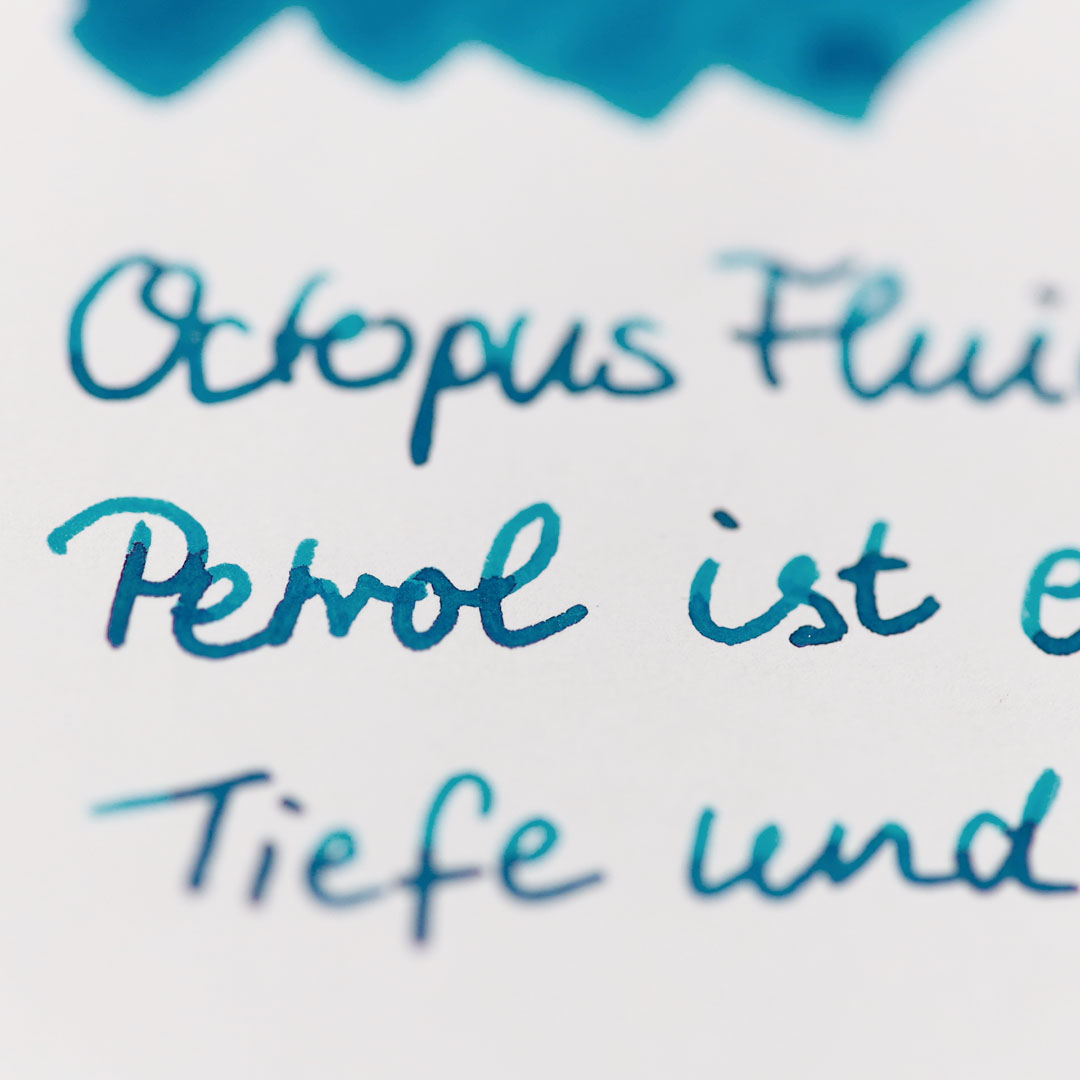 Octopus Flui
Petrol ist e
Tiefe und